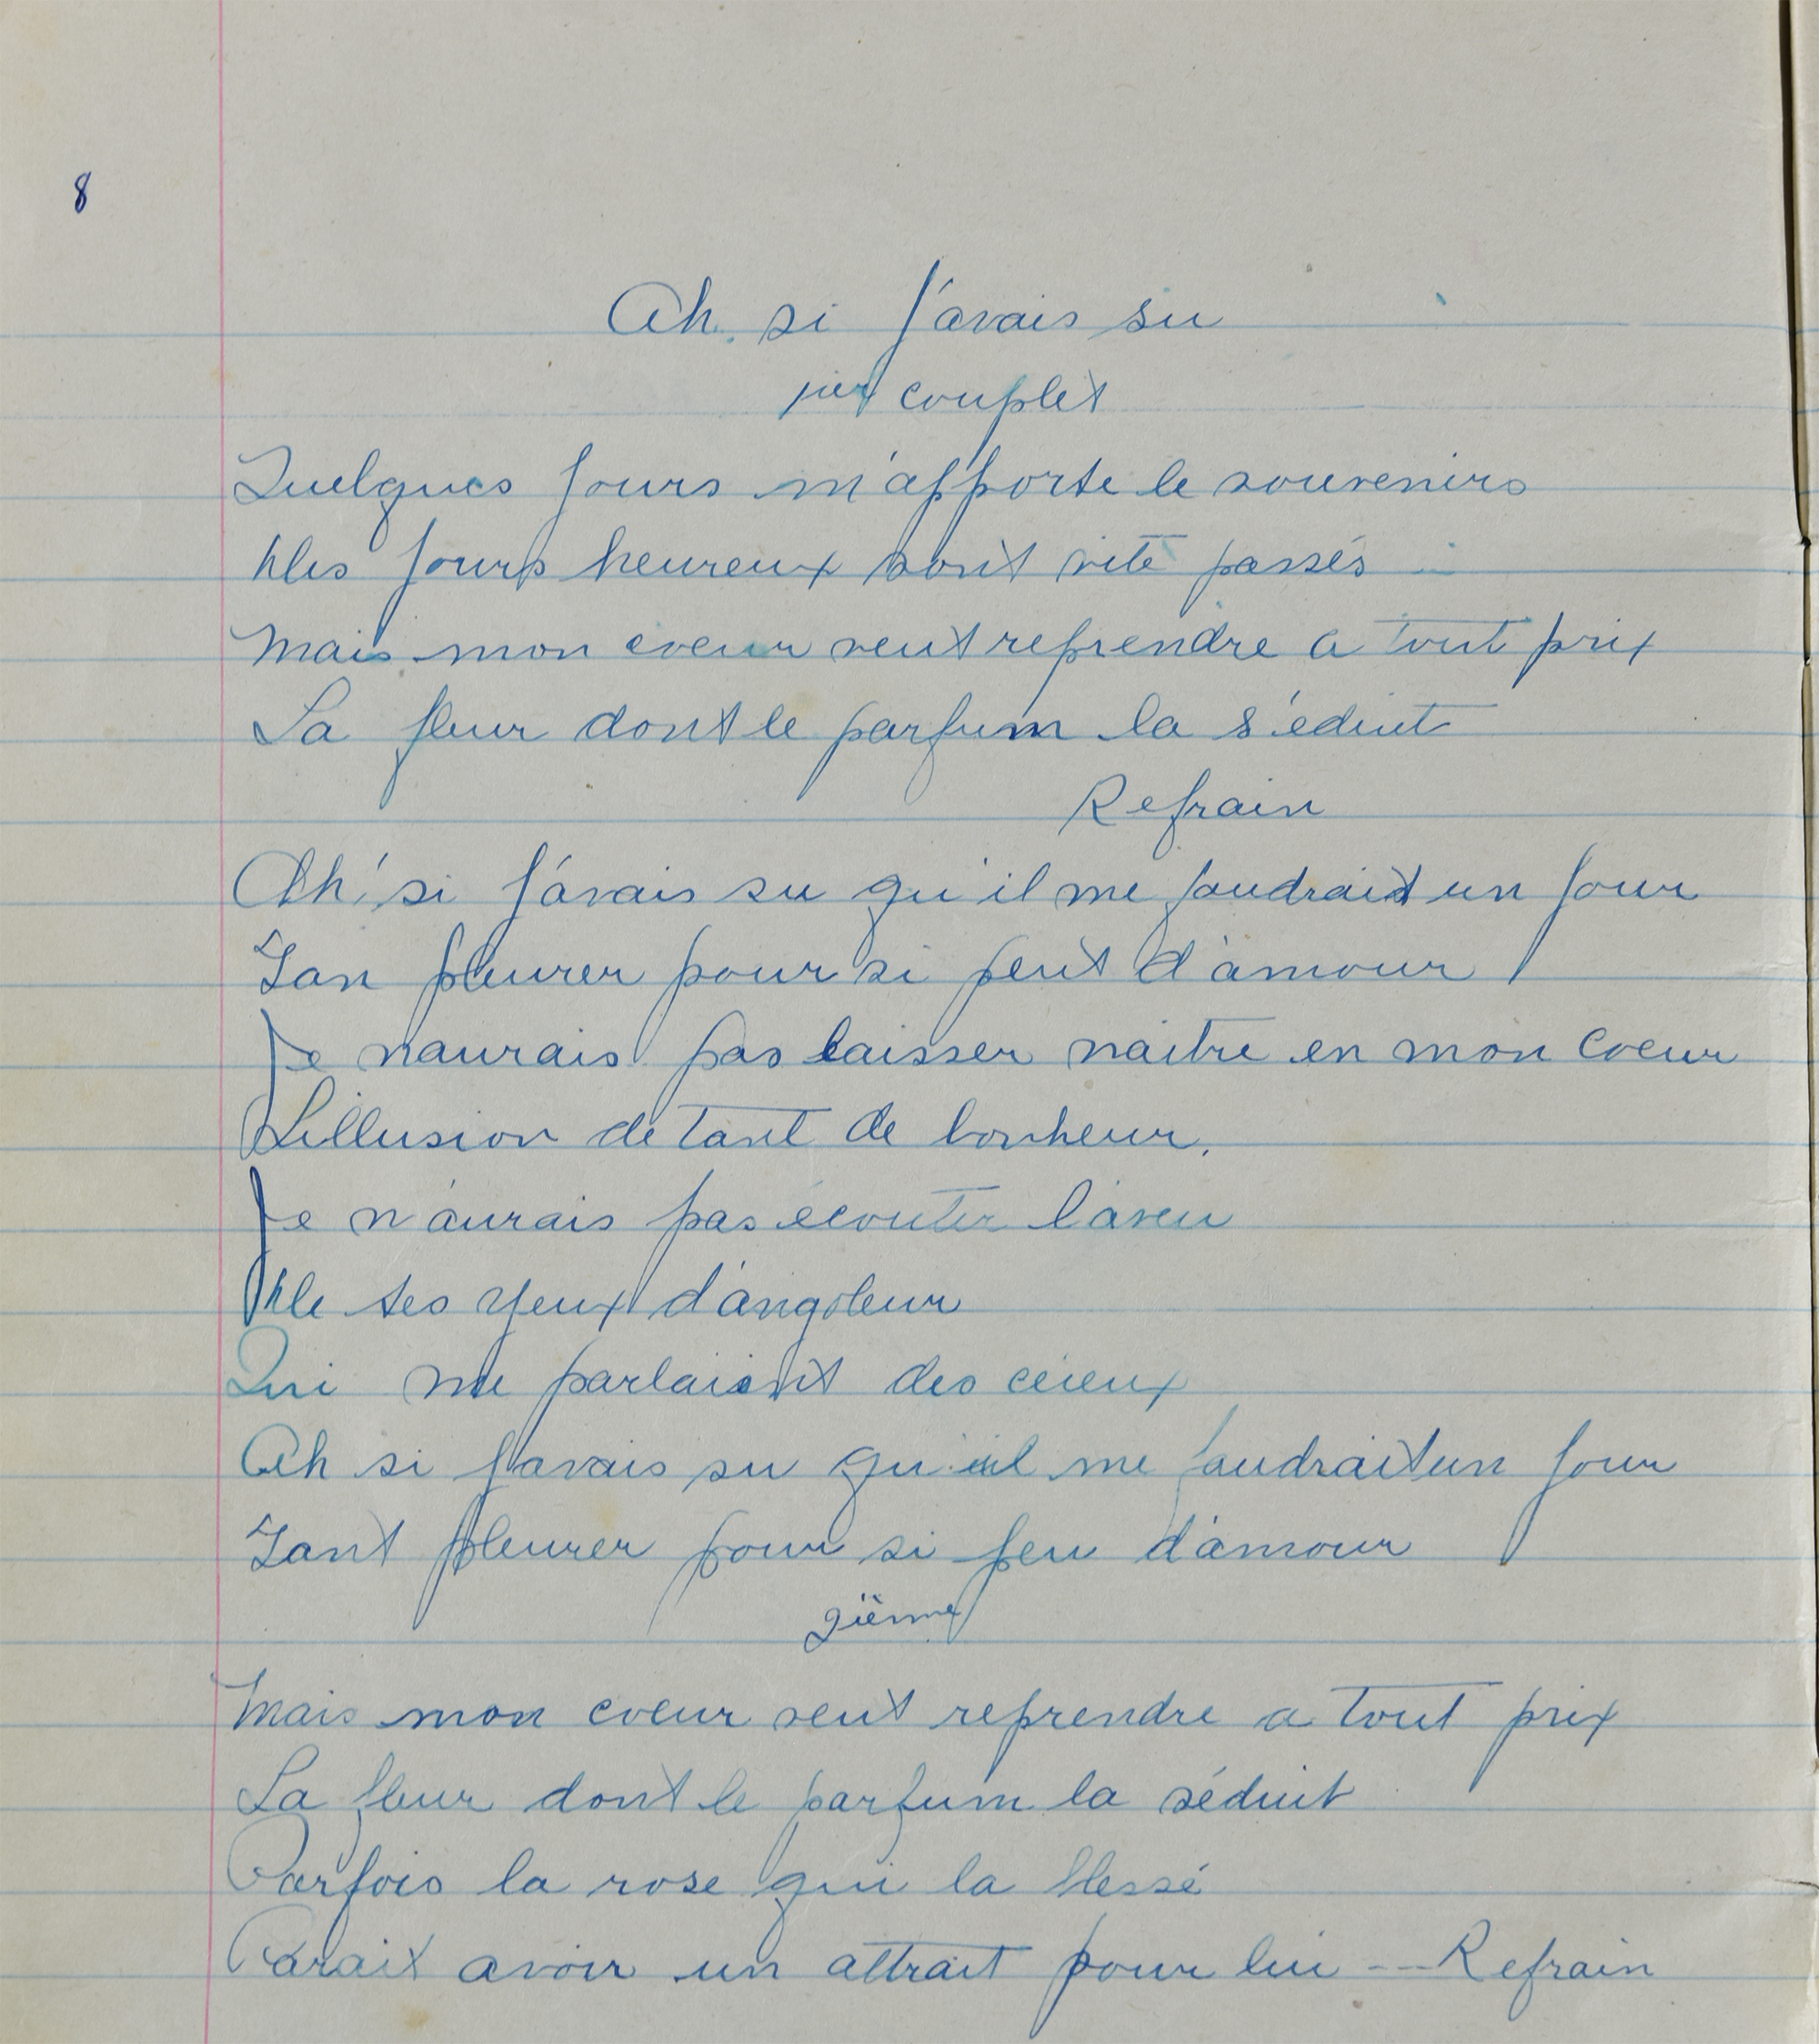 8
Ah. si j'avais su
1er couplet
Quelques jours m'apporte le souvenirs
Des jours heureux sont vite passés
Mais mon coeur veut reprendre a tout prix
La fleur dont le parfum la s'eduit
Refrain
Ah! si j'avais su qu'il me faudrait un jour
Tan pleurer pour si peut d'amour
Je naurais pas laisser naitre en mon coeur
L'illusion de tant de bonheur.
Je n'aurais pas écouter l'aveu
De tes yeux d'angoleur
Qui me parlaient des cieux
Ah si j'avais su qu'il me faudrait un jour
Tant pleurer pour si peu d'amour
2ième
Mais mon coeur veut reprendre a tout prix
La fleur dont le parfum la séduit
Parfois la rose qui la blessé
Parait avoir un attrait pour lui --- Refrain